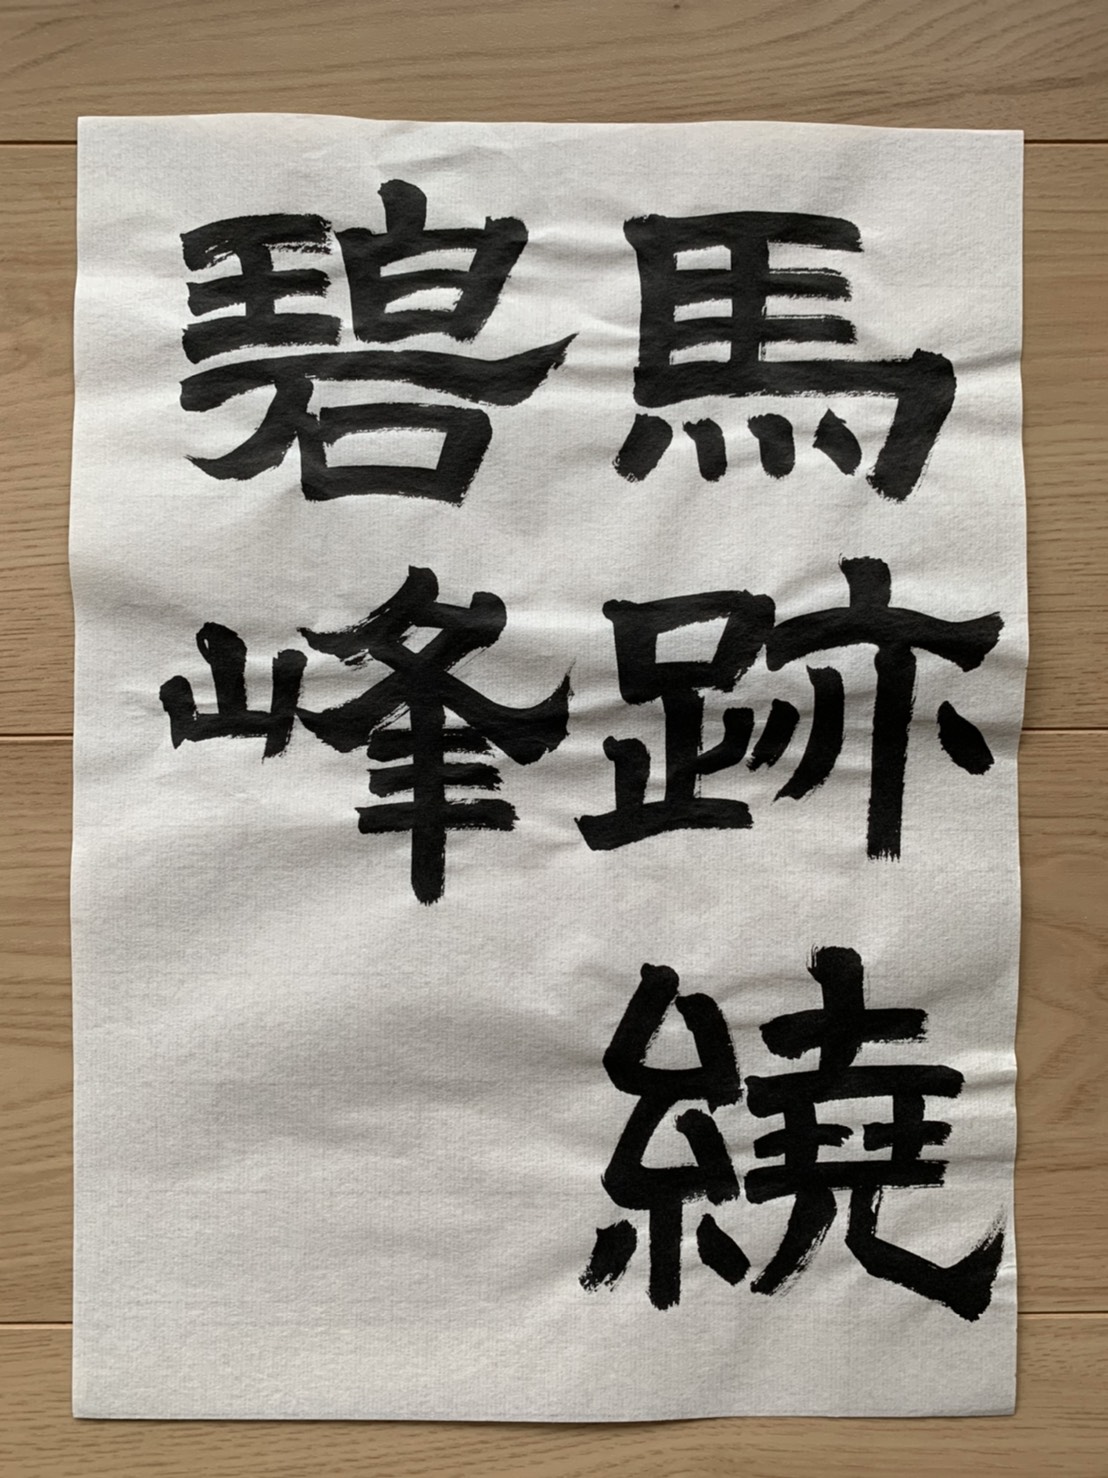 馬跡繞
碧峰